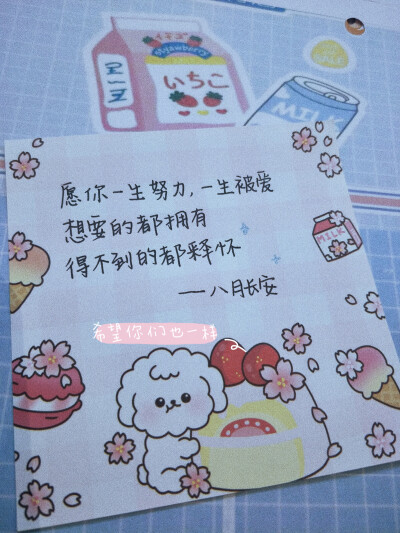 Strawberry
いちご
MILK
SALE
愿你一生努力,一生被爱
想要的都拥有
得不到的都释怀
——八月长安
MILK
希望你们也一样